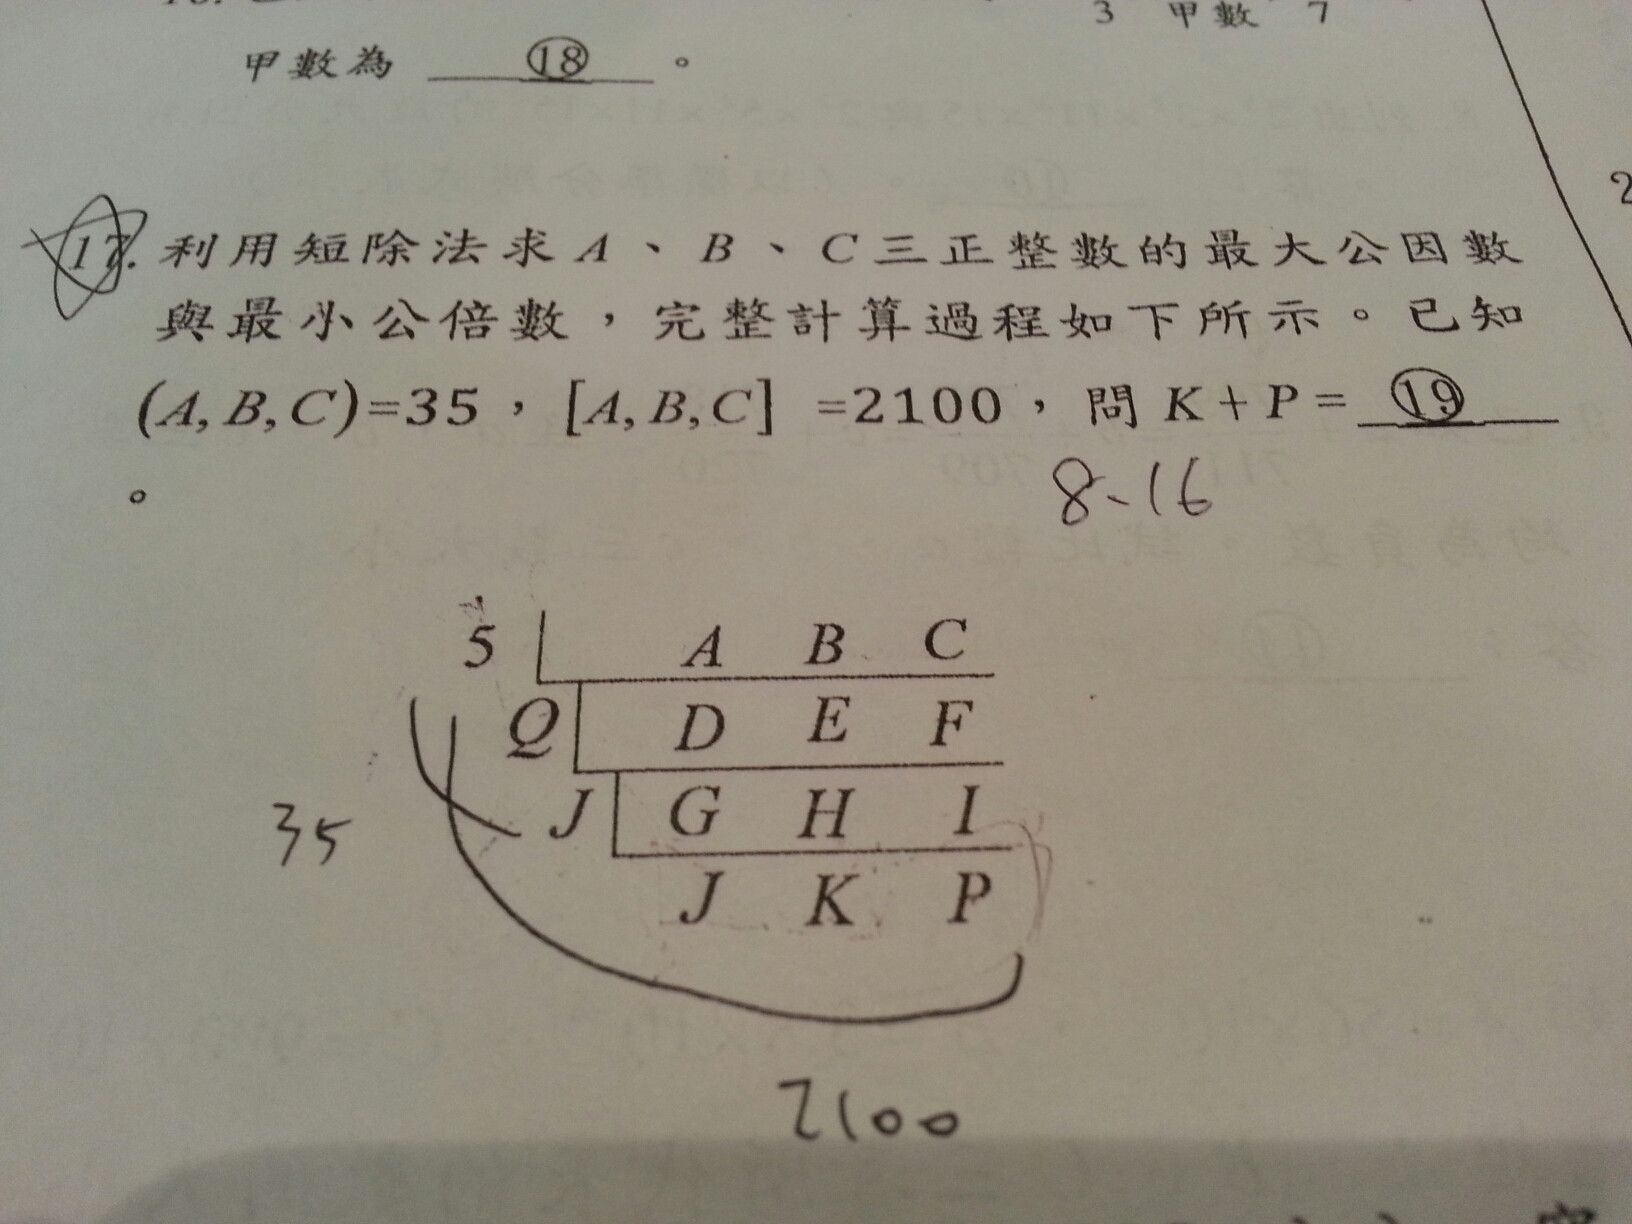 3 甲數 7
甲數為 ⑱ 。
17. 利用短除法求 A、B、C三正整數的最大公因數
與最小公倍數，完整計算過程如下所示。已知
(A, B, C)=35，[A, B, C] =2100，問 K+P= ⑲
。
8-16
5 A B C
Q D E F
J G H I
35
J K P
2100
2